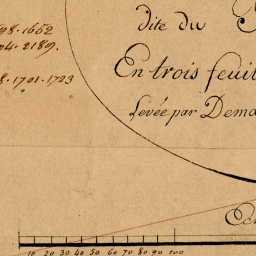 98.1652
04.2189.
8.1701.1723
dite du
En trois feuil
Levée par Dema
Ech
10 20 30 40 50 60 70 80 90 100